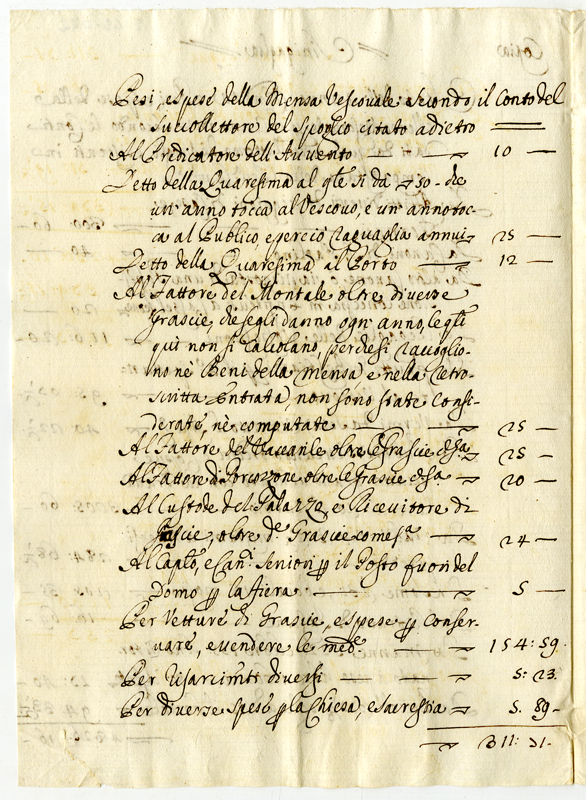 Pesi, e spese della Mensa Vescouale secondo il Conto del
Succollettore del Spoglio citato adietro
Al Predicatore dell'Auuento — 10 —
Detto della Quaresima al qle si dà 50 - che
un' anno tocca al Vescouo, e un' anno toc-
ca al Publico, e perciò raguaglia annui 25 —
Detto della Quaresima al Porto — 12 —
Al Fattore del Montale oltre diuerse
Grascie, che se gli danno ogn' anno, le qli
quì non si calcolano, perche si raccoglio-
no nè Beni della Mensa, e nella Retro-
scritta Entrata, non sono state Consi-
derate, nè computate — 25 —
Al Fattore del oltre le Grascie 25 —
Al Fattore di oltre le Grascie 20 —
Al Custode del Palazzo, e Riceuitore di
Grascie, oltre de Grascie come sa — 24 —
Al Caplo, e Can.i Seniori p il Posto fuori del
Domo p la fiera — 5 —
Per Vetture di Grascie, e spese p Conser-
uare, e uendere le mede — 154: 59.
Per Risarcimti diuersi — 5: 23.
Per diuerse spese p la Chiesa, e sacrestia 5. 89 -
311: 71 -